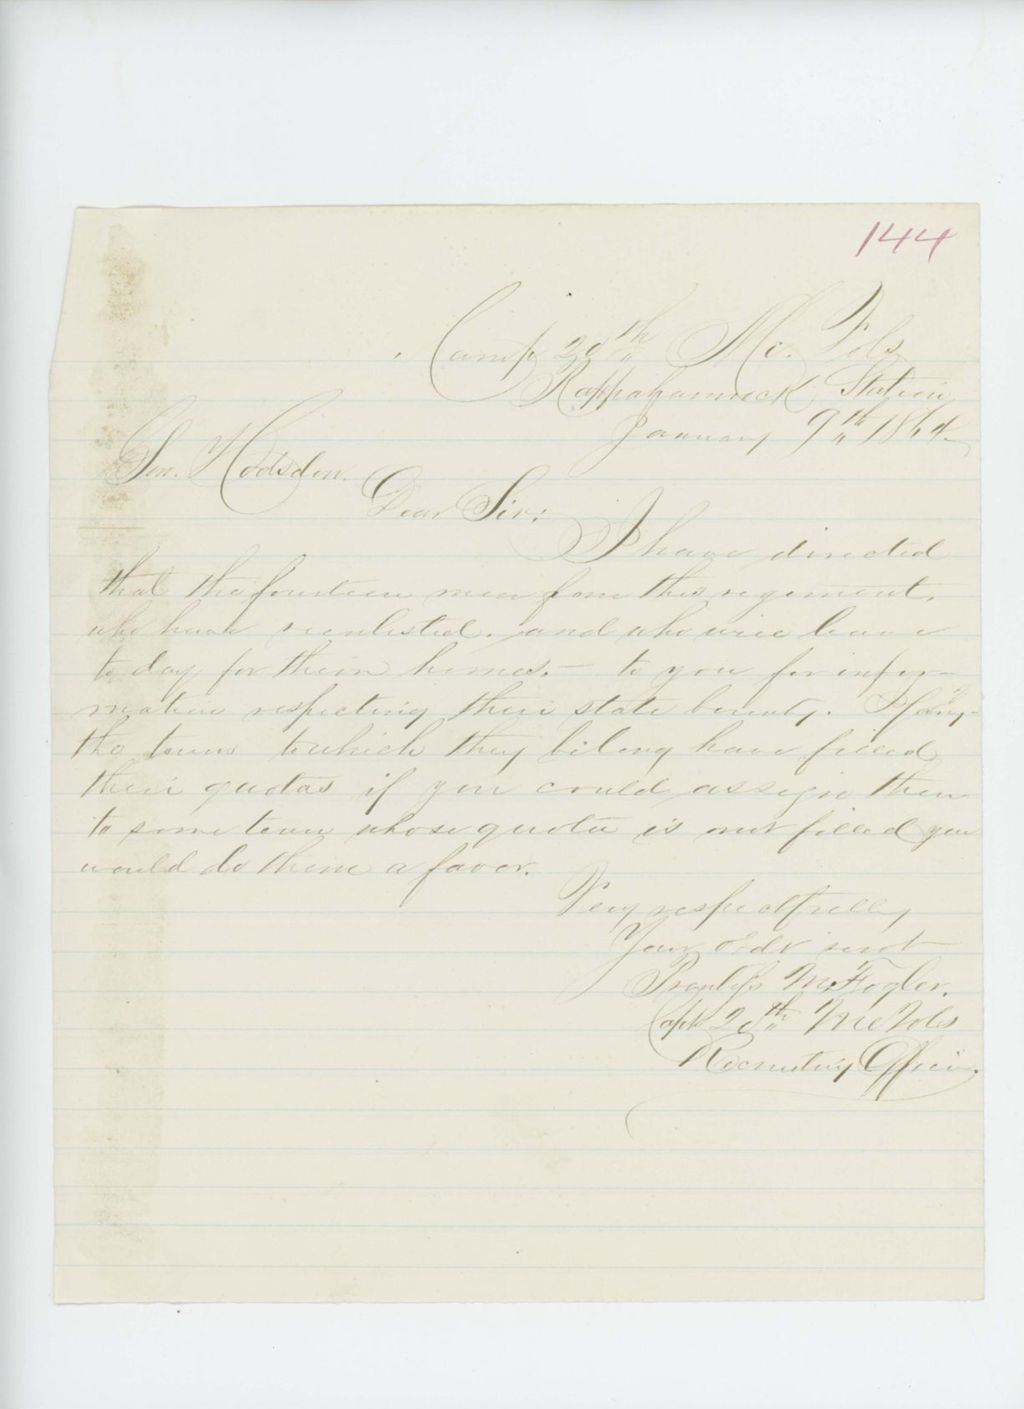 144
Camp 20th Me. Vols
Rappahannock Station
January 9th 1864.
Gen. Hodsdon.
Dear Sir:
I have directed
that the fourteen men from this regiment,
who have reenlisted. and who will leave
to day for their homes, - to you for infor-
mation respecting their state bounty. If
the towns to which they belong have filled
their quotas if you could assign them
to some town whose quota is not filled you
would do them a favor.
Very respectfully
Your Obdt servt
Prentiss M. Fogler.
Capt 20th Me Vols
Recruiting Officer.